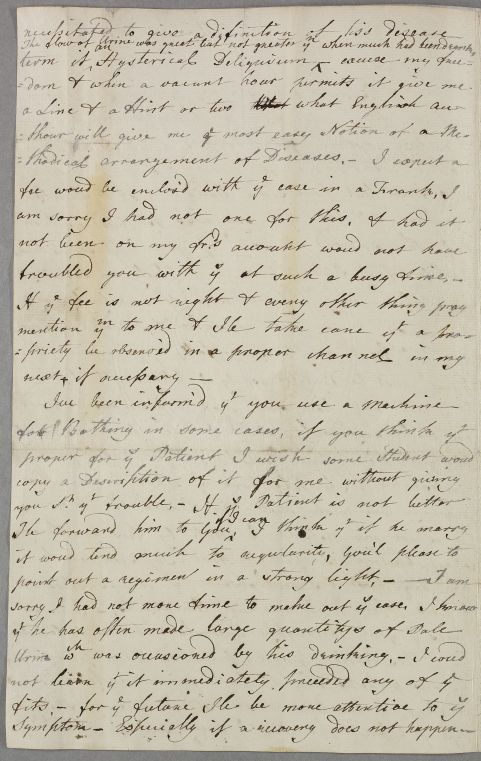 necessitated to give a definition of his disease
The flow of Urine was great but not greater yn when much had been drank
term it an Hysterical Deliquium - excuse my free-
=dom & when a vacant hour permits it give me
a Line & a Hint or two what English au-
=thour will give me ye most easy Notion of a Me-
=thodical arrangement of Diseases. - I expect a
fee woud be enclosd with ye case in a Frank, I
am sorry I had not one for this. & had it
not been on my frds account woud not have
troubled you with ys at such a busy time. -
If ye fee is not right & every other thing pray
mention ym to me & Ile take care yt a pro-
=priety be observed in a proper channel in my
next, if necessary -
Ive been informd yt you use a Machine
for Bathing in some cases, if you think yt
proper for ye Patient I wish some Student woud
copy a Description of it for me without giving
you Sr yt trouble, - If ye Patient is not better
Ile forward him to you if I can I think yt if he marry
it woud tend much to regularity, you'l please to
point out a regimen in a strong light. - I am
sorry I had not more time to make out ye case. I know
yt he has often made large quantitys of Pale
Urine wh was occasioned by his drinking. - I coud
not learn yt it immediately preceeded any of ye
fits. - for ye future Ile be more attentive to ys
Symptom - Especially if a recovery does not happen -